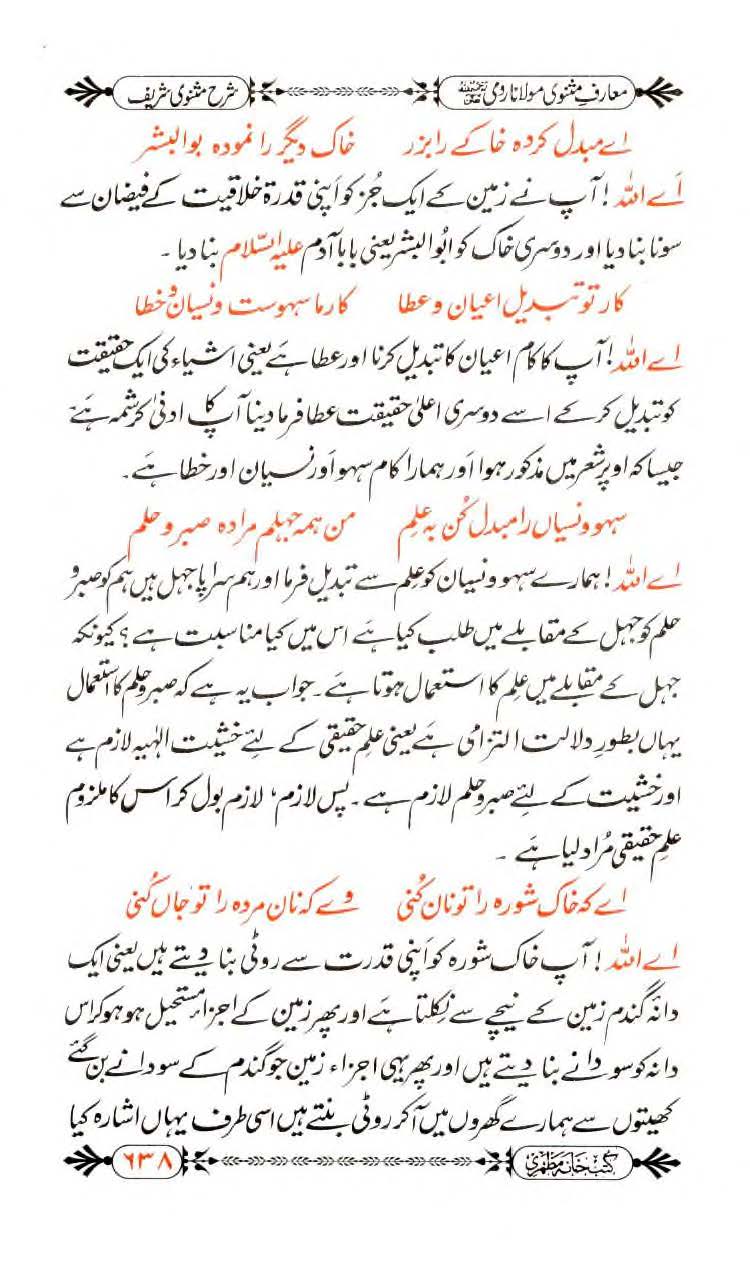 معارفِ مثنوی مولانا رومیؒ شرح مثنوی شریف
اے مبدل کردہ خاکے را بزر خاک دیگر را نمودہ بوالبشر
اَے اللہ! آپ نے زمین کے ایک جُز کو اَپنی قدرۃ خلاقیت کے فیضان سے
سونا بنا دیا اور دوسری خاک کو ابُوالبشر یعنی بابا آدم علیہ السّلام بنا دیا ۔
کار تو تبدیل اعیان و عطا کار ما سہوست و نسیان و خطا
اے اللہ! آپ کا کام اعیان کا تبدیل کرنا اور عطا ہے یعنی اشیاء کی ایک حقیقت
کو تبدیل کرکے اسے دوسری اعلیٰ حقیقت عطا فرما دینا آپ کا ادنیٰ کرشمہ ہے
جیسا کہ اوپر شعر میں مذکور ہوا اَور ہمارا کام سہو اَور نسیان اور خطا ہے۔
سہو و نسیاں را مبدل کُن بہ علِم من ہمہ جہلم مرا دہ صبر و حلم
اے اللہ! ہمارے سہو و نسیان کو علِم سے تبدیل فرما اور ہم سراپا جہل ہیں ہم کو صبر و
حلم کو جہل کے مقابلے میں طلب کیا ہے اس میں کیا مناسبت ہے؟ کیونکہ
جہل کے مقابلے میں علِم کا استعمال ہوتا ہے۔ جواب یہ ہے کہ صبر و حلِم کا استعمال
یہاں بطورِ دلالت التزامی ہے یعنی علمِ حقیقی کے لئے خشیت الٰہیہ لازم ہے
اور خشیت کے لئے صبر و حلم لازم ہے۔ پس لازم، لازم بول کر اس کا ملزوم
علمِ حقیقی مُراد لیا ہے ۔
اے کہ خاک شورہ را تو نان کُنی وے کہ نان مردہ را تو جاں کُنی
اے اللہ! آپ خاک شورہ کو اَپنی قدرت سے روٹی بنا دیتے ہیں یعنی ایک
دانۂ گندم زمین کے نیچے سے نِکلتا ہے اور پھر زمین کے اجزاء مستحیل ہو ہو کر اس
دانہ کو سو دانے بنا دیتے ہیں اور پھر یہی اجزاء زمین جو گندم کے سو دانے بن گئے
کھیتوں سے ہمارے گھروں میں آکر روٹی بنتے ہیں اسی طرف یہاں اشارہ کیا
کتب خانہ مظہری ۶۳۸